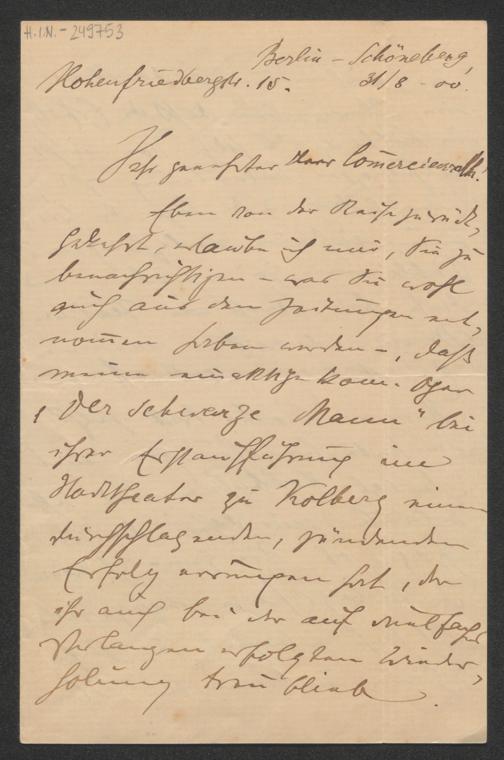 H.I.N.-249753
Berlin-Schöneberg,
Hohenfriedbergstr. 15. 31/8-00.
Sehr geehrter Herr Commercienrath!
Eben von der Reise zurück,
gekehrt, erlaube ich mir, Sie zu
benachrichtigen – was Sie wohl
auch aus den Zeitungen ent,
nommen haben werden –, daß
meine einaktige kom. Oper
„Der schwarze Mann" bei
ihrer Erstaufführung im
Stadttheater zu Kolberg einen
durchschlagenden, zündenden
Erfolg errungen hat, der
ihr auch bei der auf vielfaches
Verlangen erfolgten Wieder,
holung treu blieb.